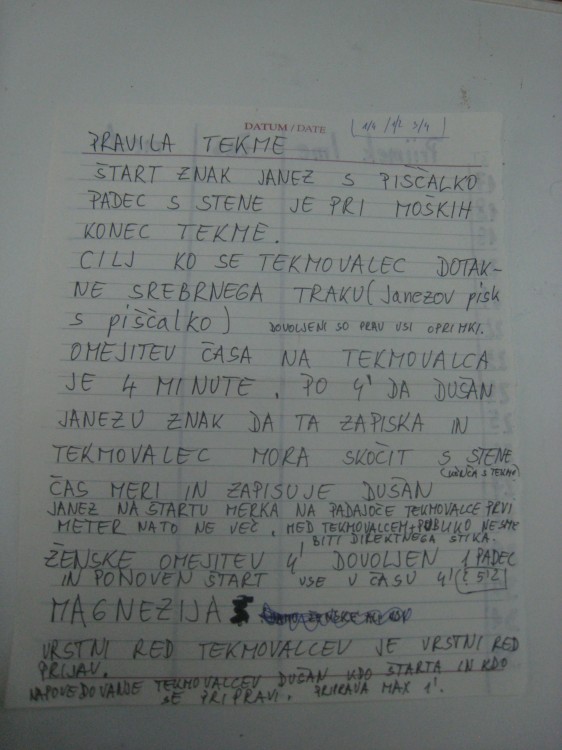 DATUM / DATE
1/4 / 1/2 3/4
PRAVILA TEKME
ŠTART ZNAK JANEZ S PIŠČALKO
PADEC S STENE JE PRI MOŠKIH
KONEC TEKME.
CILJ KO SE TEKMOVALEC DOTAK-
NE SREBRNEGA TRAKU (Janezov pisk
s piščalko) DOVOLJENI SO PRAV VSI OPRIMKI.
OMEJITEV ČASA NA TEKMOVALCA
JE 4 MINUTE. PO 4' DA DUŠAN
JANEZU ZNAK DA TA ZAPISKA IN
TEKMOVALEC MORA SKOČIT S STENE
ČAS MERI IN ZAPISUJE DUŠAN
JANEZ NA ŠTARTU MERKA NA PADAJOČE TEKMOVALCE PRVI
METER NATO NE VEČ. MED TEKMOVALCEM + PUBLIKO NE SME
BITI DIREKTNEGA STIKA.
ŽENSKE OMEJITEV 4' DOVOLJEN 1 PADEC
IN PONOVEN ŠTART VSE V ČASU 4'
MAGNEZIJA
VRSTNI RED TEKMOVALCEV JE VRSTNI RED
PRIJAV.
NAPOVEDOVANJE TEKMOVALCEV DUŠAN KDO ŠTARTA IN KDO
SE PRIPRAVI. PRIPRAVA MAX 1'.